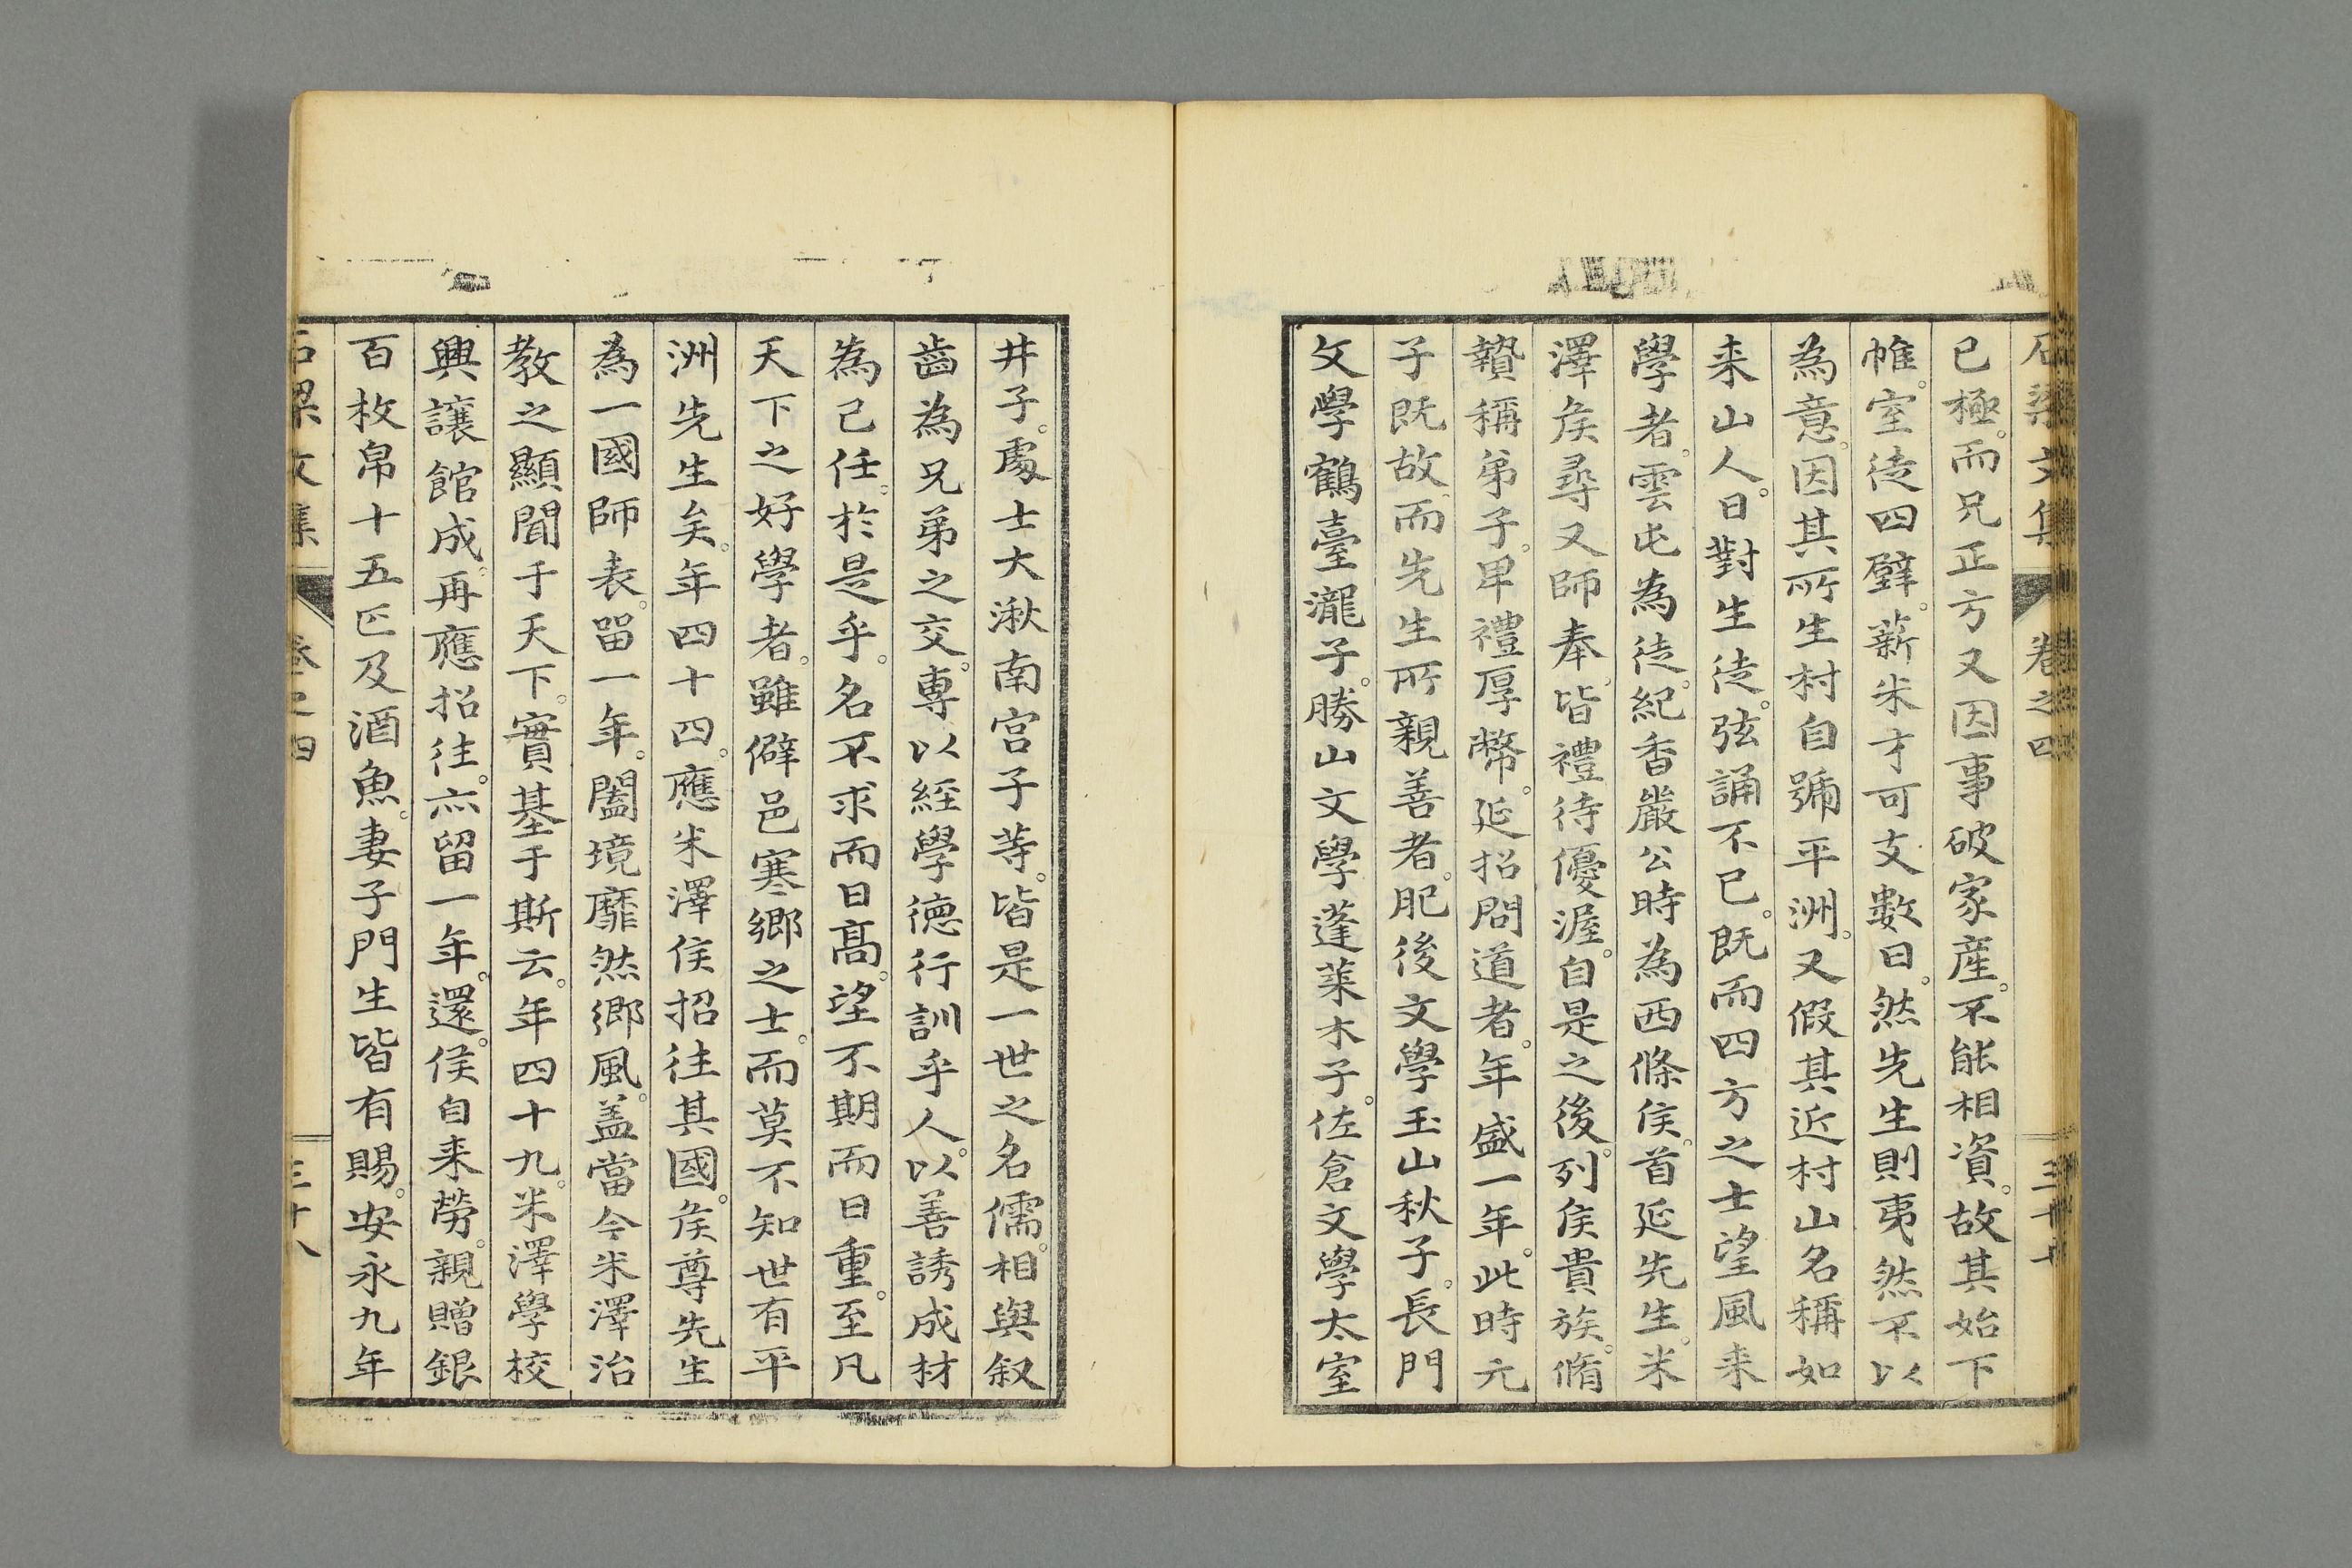 石梁文集 卷之四 三十七
已極。而兄正方又因事破家産。不能相資。故其始下
帷。室徒四壁。薪米才可支數日。然先生則夷然不以
為意。因其所生村自號平洲。又假其近村山名稱如
来山人。日對生徒。弦誦不已。既而四方之士望風来
學者。雲屯為徒。紀香嚴公時為西條侯。首延先生。米
澤矦尋又師奉。皆禮待優渥。自是之後。列侯貴族。脩
贄稱弟子。卑禮厚幣。延招問道者。年盛一年。此時元
子既故。而先生所親善者。肥後文學玉山秋子。長門
文學鶴臺瀧子。勝山文學蓬萊木子。佐倉文學太室
井子。處士大湫南宮子等。皆是一世之名儒。相與叙
齒為兄弟之交。專以經學德行訓乎人。以善誘成材
為己任。於是乎。名不求而日高。望不期而日重。至凡
天下之好學者。雖僻邑寒郷之士。而莫不知世有平
洲先生矣。年四十四。應米澤侯招往其國。矦尊先生
為一國師表。畱一年。闔境靡然鄉風。盖當今米澤治
教之顯聞于天下。實基于斯云。年四十九。米澤學校
興讓館成。再應招往。亦留一年。還。侯自来勞。親贈銀
百枚帛十五匹及酒魚。妻子門生皆有賜。安永九年
石梁文集 卷之四 三十八